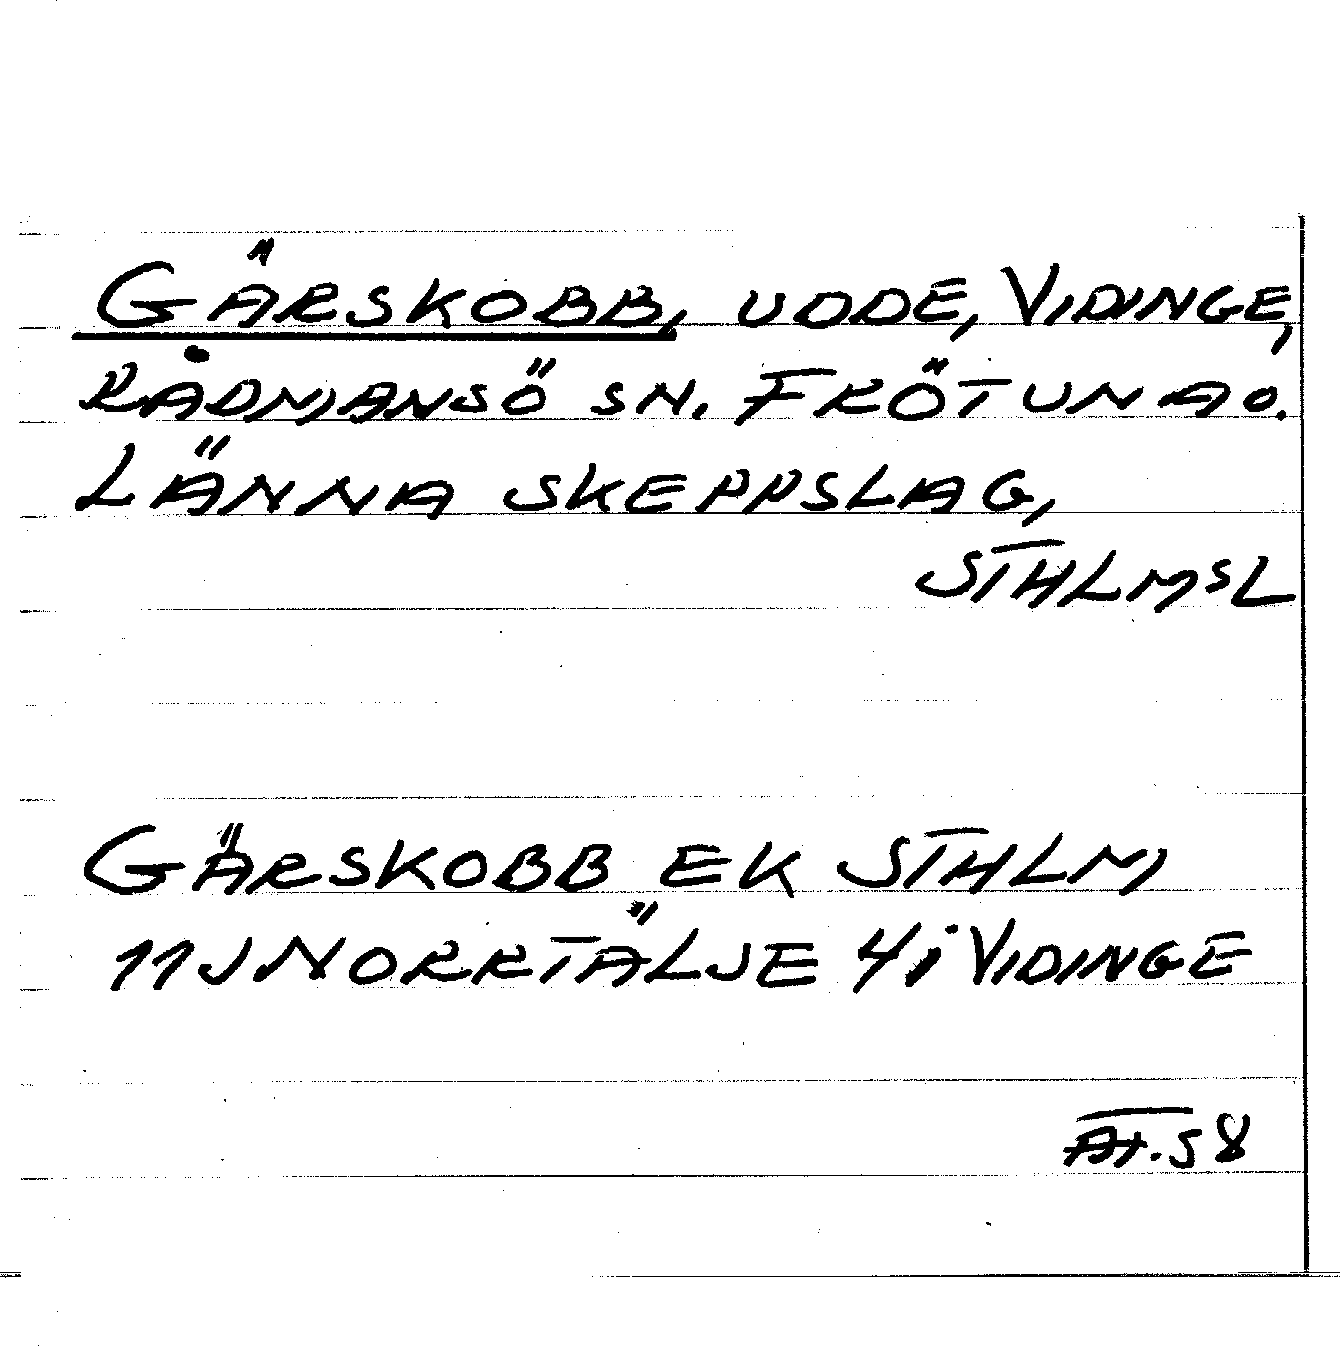 GÄRSKOBB, UDDE, VIDINGE,
RÅDMANSÖ SN. FRÖTUNA O.
LÄNNA SKEPPSLAG,
STHLMSL
GÄRSKOBB EK STHLM
11J NORRTÄLJE 4i VIDINGE
AT.58